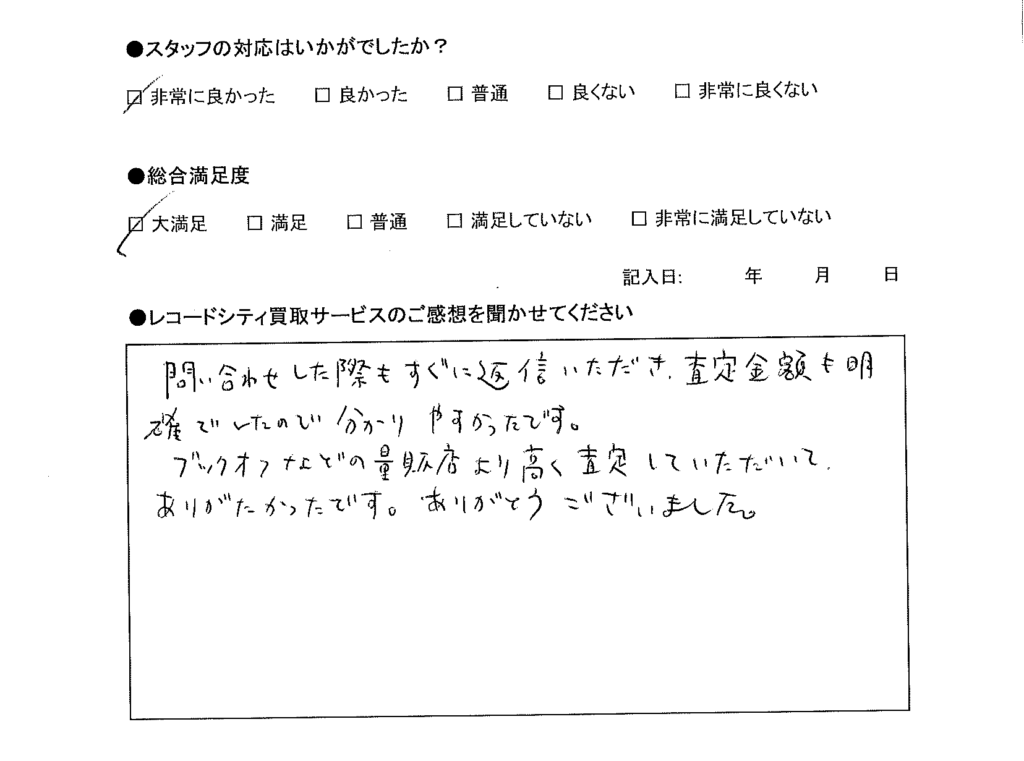 ●スタッフの対応はいかがでしたか？
☑ 非常に良かった □ 良かった □ 普通 □ 良くない □ 非常に良くない
●総合満足度
☑ 大満足 □ 満足 □ 普通 □ 満足していない □ 非常に満足していない
記入日: 年 月 日
●レコードシティ買取サービスのご感想を聞かせてください
問い合わせした際もすぐに返信いただき、査定金額も明
確でしたので分かりやすかったです。
ブックオフなどの量販店より高く査定していただいて、
ありがたかったです。ありがとうございました。